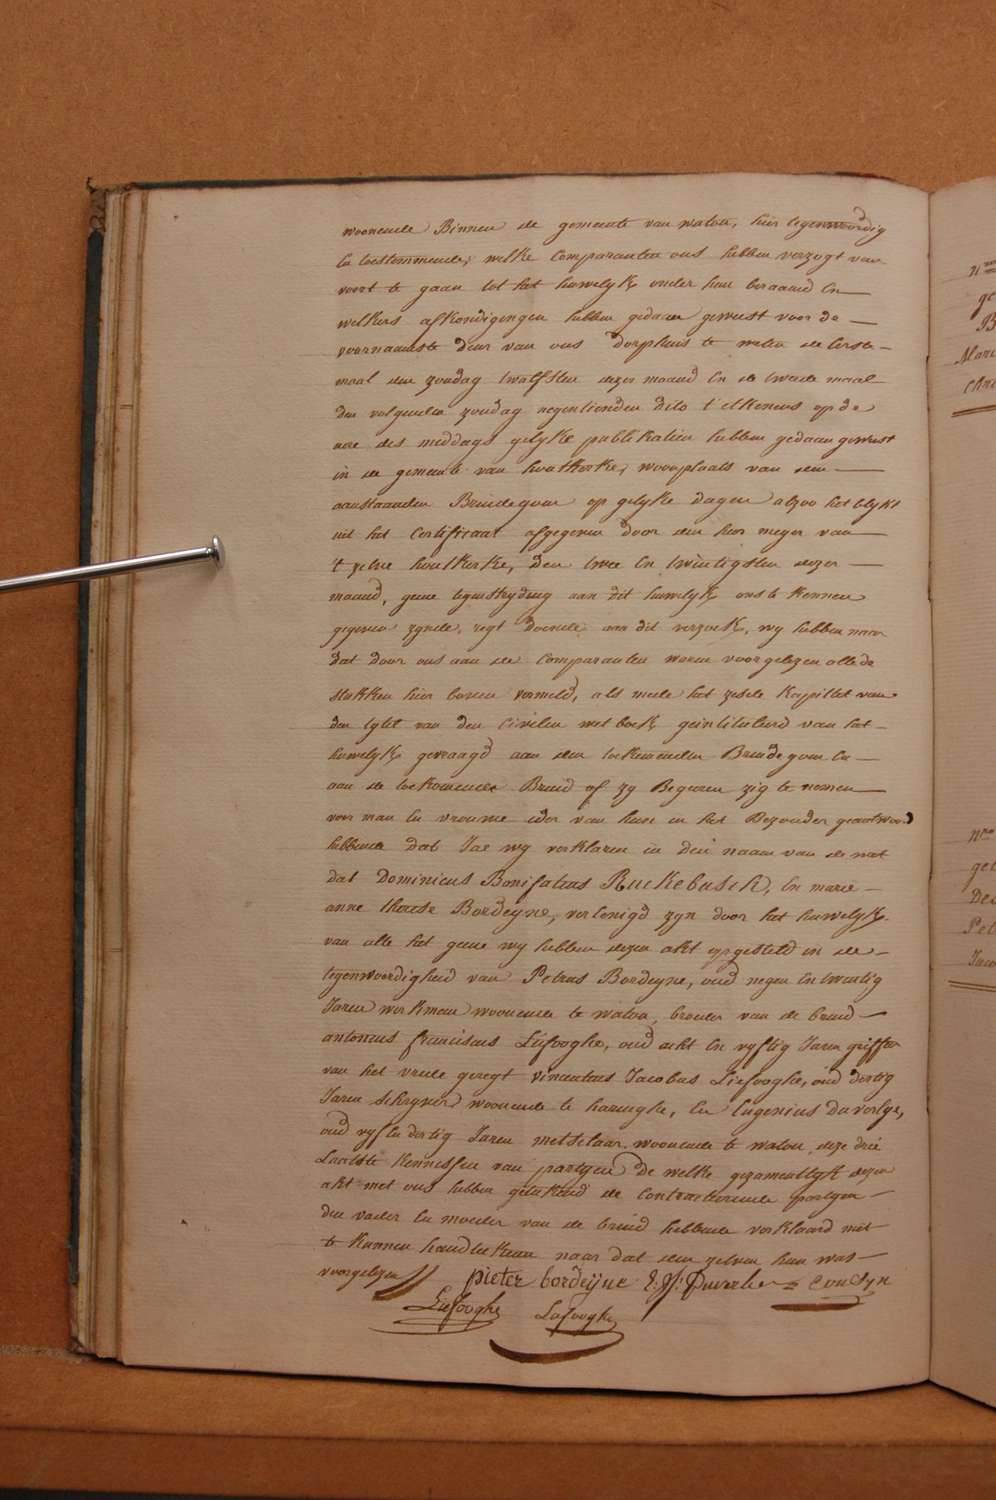 woonende Binnen de gemeente van watou, hier tegenwoordig
En toestemmende, welke Comparanten ons hebben verzogt van
voort te gaan tot het huwelyk onder hun beraamd En
welkers afkondigingen hebben gedaan geweest voor de
voornaamste deur van ons dorphuis te weten de Eerste
maal den zondag twalfsten dezer maand En de tweede maal
den volgenden zondag negentienden dito t'elkenens op de
ure des middags gelyke publikatien hebben gedaan geweest
in de gemeente van houtkerke, woonplaats van den
aanstaanden Bruidegom op gelyke dagen alzoo het blykt
uit het Certificaat afgegeven door den heer meyer van
't zelve houtkerke, den twee En twintigsten dezer
maand, geene tegenstryding aan dit huwelyk ons te kennen
gegeven zynde, regt doende aan dit verzoek, wy hebben naer
dat door ons aan de Comparanten waren voorgelezen alle de
stukken hier boven vermeld, als mede het zesde kapittel van
den tytel van den Civilen wetboek geintituleerd van het
huwelyk gevraagd aan den toekomenden Bruidegom En
aan de toekomende Bruid of zy Begeeren zig te nemen
voor man En vrouwe ider van hun in het Bezonder geantwoord
hebbende dat Jae wy verklaren in den naam van de wet
dat Dominicus Bonifatius Ruckebusch, En marie
anne therese Bordeyne, verEenigd zyn door het huwelyk
van alle het geene wy hebben dezen akt opgesteld in de
tegenwoordigheid van Petrus Bordeyne, oud negen En twintig
Jaren werkman woonende te watou, broeder van de bruid
antonius franciscus Liefooghe, oud acht En vyftig Jaren griffier
van het vrede geregt vincentius Jacobus Liefooghe, oud dertig
Jaren schryver woonende te haringhe, En Eugenius
oud vyf En dertig Jaren metselaar woonende te watou, deze drie
Laatste kennissen van partyen De welke gezamentlyk dezen
akt met ons hebben geteekend de Contracteerende partyen
den vader En moeder van de bruid hebbende verklaard niet
te kunnen handteekenen naar dat den zelven hun was
voorgelezen
pieter bordeijne
Liefooghe Liefooghe
N
ge
B
Mari
Chri
Nro
get
De
Pet
Jaco